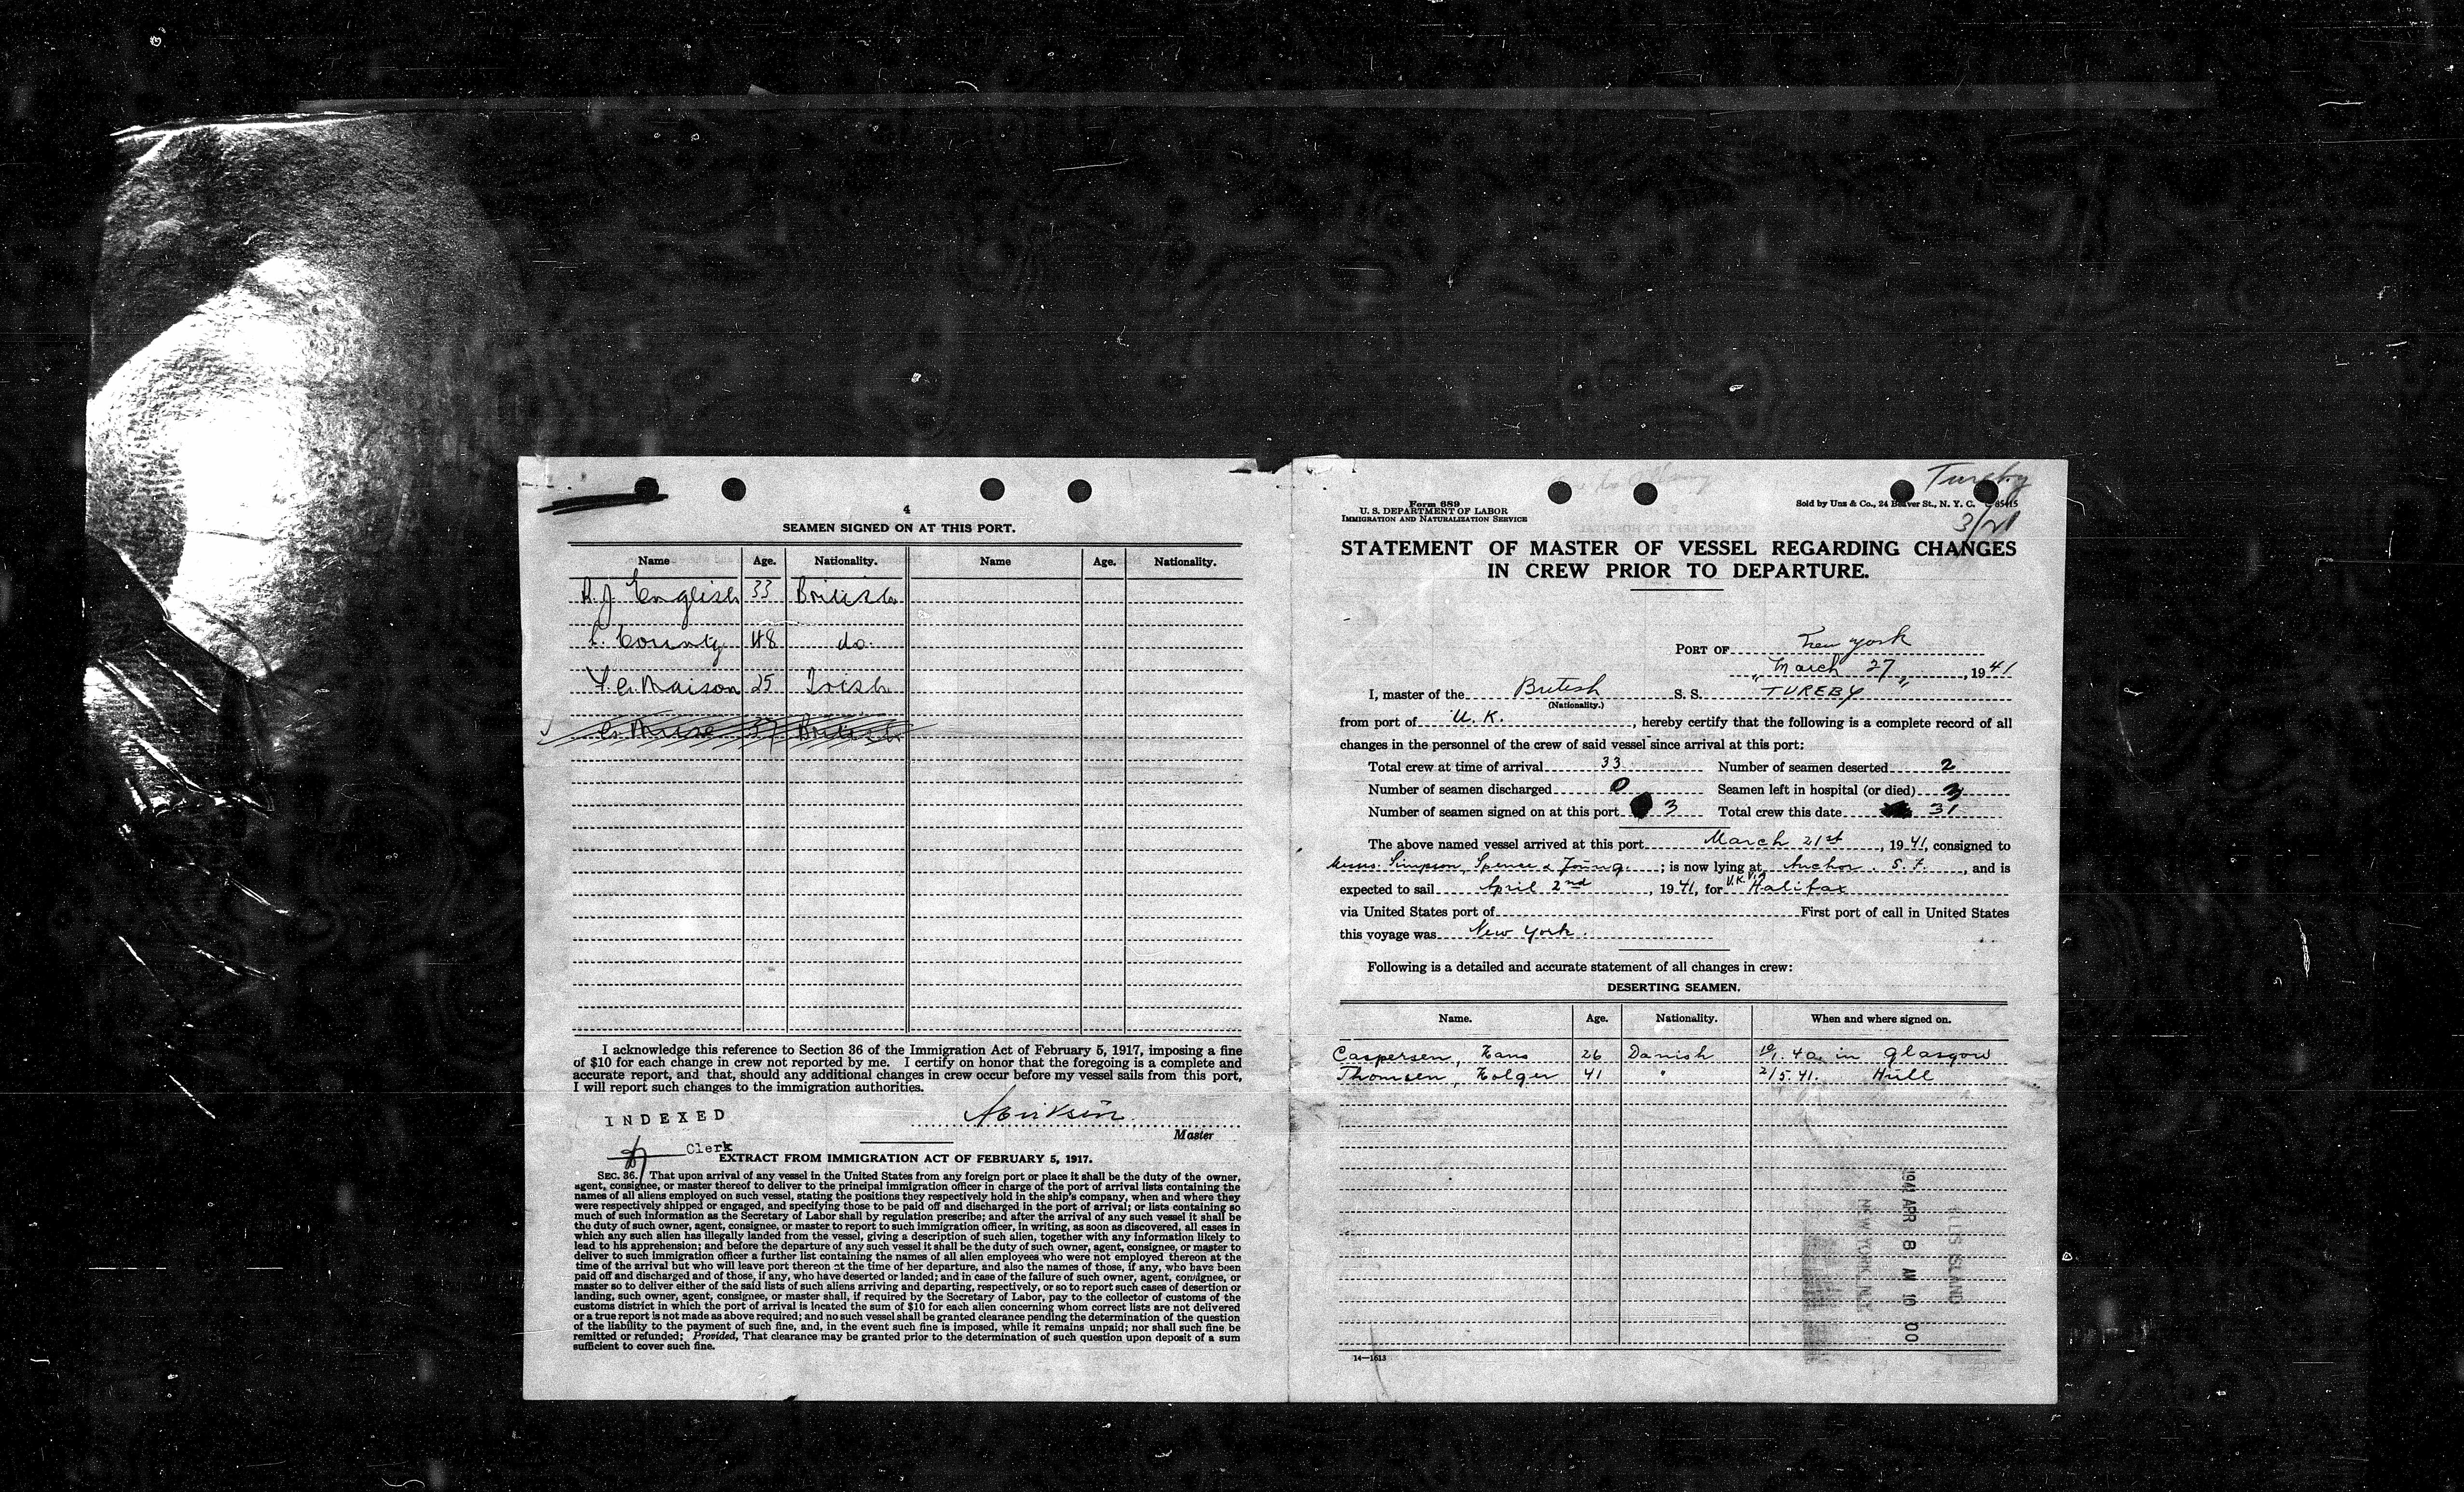 4
SEAMEN SIGNED ON AT THIS PORT.
Name Age. Nationality. Name Age. Nationality.
R. J. English 33 British
County 48 do.
25 Irish
37 British
I acknowledge this reference to Section 36 of the Immigration Act of February 5, 1917, imposing a fine
of $10 for each change in crew not reported by me. I certify on honor that the foregoing is a complete and
accurate report, and that, should any additional changes in crew occur before my vessel sails from this port,
I will report such changes to the immigration authorities.
INDEXED
Master
Clerk
EXTRACT FROM IMMIGRATION ACT OF FEBRUARY 5, 1917.
SEC. 36. That upon arrival of any vessel in the United States from any foreign port or place it shall be the duty of the owner,
agent, consignee, or master thereof to deliver to the principal immigration officer in charge of the port of arrival lists containing the
names of all aliens employed on such vessel, stating the positions they respectively hold in the ship's company, when and where they
were respectively shipped or engaged, and specifying those to be paid off and discharged in the port of arrival; or lists containing so
much of such information as the Secretary of Labor shall by regulation prescribe; and after the arrival of any such vessel it shall be
the duty of such owner, agent, consignee, or master to report to such immigration officer, in writing, as soon as discovered, all cases in
which any such alien has illegally landed from the vessel, giving a description of such alien, together with any information likely to
lead to his apprehension; and before the departure of any such vessel it shall be the duty of such owner, agent, consignee, or master to
deliver to such immigration officer a further list containing the names of all alien employees who were not employed thereon at the
time of the arrival but who will leave port thereon at the time of her departure, and also the names of those, if any, who have been
paid off and discharged and of those, if any, who have deserted or landed; and in case of the failure of such owner, agent, consignee, or
master so to deliver either of the said lists of such aliens arriving and departing, respectively, or so to report such cases of desertion or
landing, such owner, agent, consignee, or master shall, if required by the Secretary of Labor, pay to the collector of customs of the
customs district in which the port of arrival is located the sum of $10 for each alien concerning whom correct lists are not delivered
or a true report is not made as above required; and no such vessel shall be granted clearance pending the determination of the question
of the liability to the payment of such fine, and, in the event such fine is imposed, while it remains unpaid; nor shall such fine be
remitted or refunded; Provided, That clearance may be granted prior to the determination of such question upon deposit of a sum
sufficient to cover such fine.
Tureby
3/21
Form 689
U. S. DEPARTMENT OF LABOR
IMMIGRATION AND NATURALIZATION SERVICE
Sold by Unz & Co., 24 Beaver St., N. Y. C.
STATEMENT OF MASTER OF VESSEL REGARDING CHANGES
IN CREW PRIOR TO DEPARTURE.
PORT OF New York
March 27, 1941
I, master of the British S. S. "TUREBY"
(Nationality.)
from port of U. K., hereby certify that the following is a complete record of all
changes in the personnel of the crew of said vessel since arrival at this port:
Total crew at time of arrival 33 Number of seamen deserted 2
Number of seamen discharged 0 Seamen left in hospital (or died) 3
Number of seamen signed on at this port 3 Total crew this date 31
The above named vessel arrived at this port March 21st, 1941, consigned to
Messrs. Simpson, Spence & Young; is now lying at Anchor. S. F., and is
expected to sail April 2nd, 1941, for U.K. via Halifax
via United States port of First port of call in United States
this voyage was New York.
Following is a detailed and accurate statement of all changes in crew:
DESERTING SEAMEN.
Name. Age. Nationality. When and where signed on.
Caspersen, Hans 26 Danish 40 in Glasgow
Thomsen, Holger 41 " 2/5.41. Hull
14—1613
1941 APR 8 AM 10 00
NEW YORK, N.Y.
ELLIS ISLAND